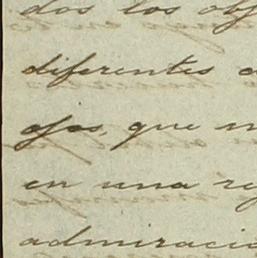 dos los obj
diferentes c
ojos, que n
en una re
admiració